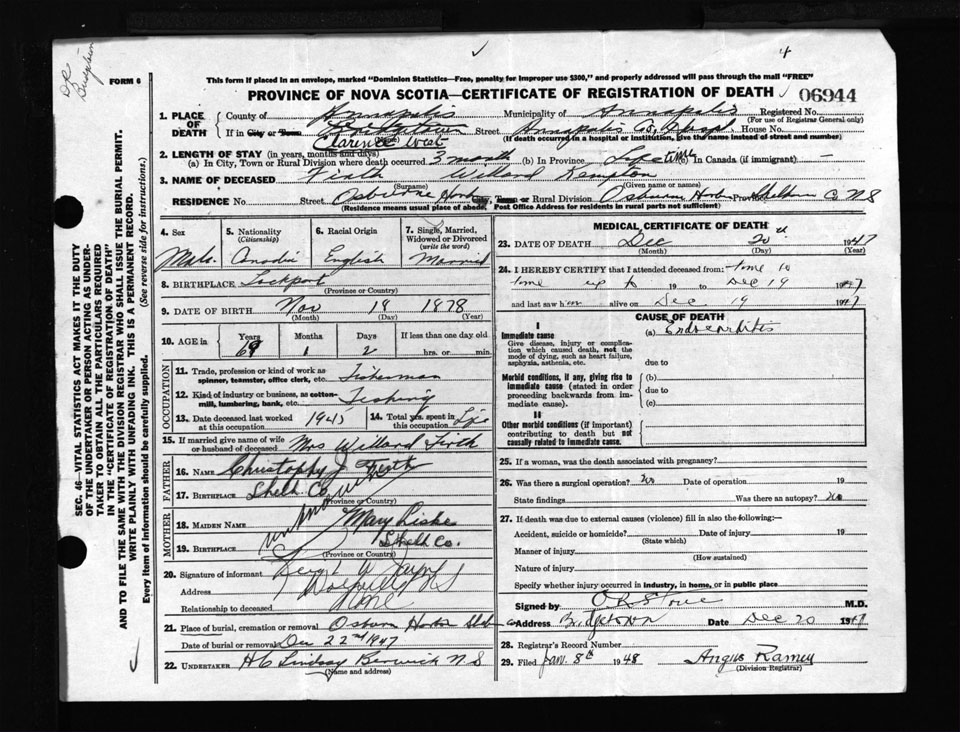 DR
FORM 6
This form if placed in an envelope, marked "Dominion Statistics—Free, penalty for improper use $300," and properly addressed will pass through the mail "FREE"
PROVINCE OF NOVA SCOTIA—CERTIFICATE OF REGISTRATION OF DEATH 06944
1. PLACE OF DEATH County of Annapolis Municipality of Annapolis Registered No.
(For use of Registrar General only)
If in City or Town Bridgetown Street Annapolis Co. Hospl House No.
(If death occurred in a hospital or institution, give the name instead of street and number)
Clarence West
2. LENGTH OF STAY (in years, months and days)
(a) In City, Town or Rural Division where death occurred 3 month (b) In Province Lifetime (c) In Canada (if immigrant) —
3. NAME OF DECEASED Firth Willard Kempton
(Surname) (Given name or names)
RESIDENCE No. Street Osborne Harb City, Town or Rural Division Osburne Harbor Province Shelburn Co NS
(Residence means usual place of abode. Post Office Address for residents in rural parts not sufficient)
4. Sex Male
5. Nationality (Citizenship) Canadian
6. Racial Origin English
7. Single, Married, Widowed or Divorced (write the word) Married
8. BIRTHPLACE Lockport
(Province or Country)
9. DATE OF BIRTH Nov 18 1878
(Month) (Day) (Year)
10. AGE in Years 69 Months 1 Days 2 If less than one day old hrs. or min.
OCCUPATION
11. Trade, profession or kind of work as spinner, teamster, office clerk, etc. Fisherman
12. Kind of industry or business, as cotton-mill, lumbering, bank, etc. Fishing
13. Date deceased last worked at this occupation 1945 14. Total yrs. spent in this occupation Life
15. If married give name of wife or husband of deceased Mrs Willard Firth
FATHER
16. NAME Christophy J Firth
17. BIRTHPLACE Shelb. Co.
(Province or Country)
MOTHER
18. MAIDEN NAME Mary Liske
19. BIRTHPLACE Shelb Co.
(Province or Country)
20. Signature of informant
Address
Relationship to deceased
21. Place of burial, cremation or removal Osburn Harbor
Date of burial or removal Dec 22nd 1947
22. UNDERTAKER H C Lindsay Berwick N S
(Name and address)
MEDICAL CERTIFICATE OF DEATH
23. DATE OF DEATH Dec 20 1947
(Month) (Day) (Year)
24. I HEREBY CERTIFY that I attended deceased from: time to
time up to 19 to Dec 19 1947
and last saw him alive on Dec 19 1947
CAUSE OF DEATH
I
Immediate cause (a) Endocarditis
Give disease, injury or complication which caused death, not the mode of dying, such as heart failure, asphyxia, asthenia, etc.
due to
Morbid conditions, if any, giving rise to immediate cause (stated in order proceeding backwards from immediate cause).
(b)
due to
(c)
II
Other morbid conditions (if important) contributing to death but not causally related to immediate cause.
25. If a woman, was the death associated with pregnancy?
26. Was there a surgical operation? no Date of operation 19
State findings Was there an autopsy? no
27. If death was due to external causes (violence) fill in also the following:—
Accident, suicide or homicide? Date of injury 19
(State which)
Manner of injury
(How sustained)
Nature of injury
Specify whether injury occurred in industry, in home, or in public place
Signed by M.D.
Address Bridgetown Date Dec 20 1947
28. Registrar's Record Number
29. Filed Jan. 8th 1948 Angus Ramey
(Division Registrar)
SEC. 46—VITAL STATISTICS ACT MAKES IT THE DUTY
OF THE UNDERTAKER OR PERSON ACTING AS UNDER-
TAKER TO OBTAIN ALL THE PARTICULARS REQUIRED
IN THE "CERTIFICATE OF REGISTRATION OF DEATH"
AND TO FILE THE SAME WITH THE DIVISION REGISTRAR WHO SHALL ISSUE THE BURIAL PERMIT.
WRITE PLAINLY WITH UNFADING INK. THIS IS A PERMANENT RECORD.
Every item of Information should be carefully supplied. (See reverse side for instructions.)